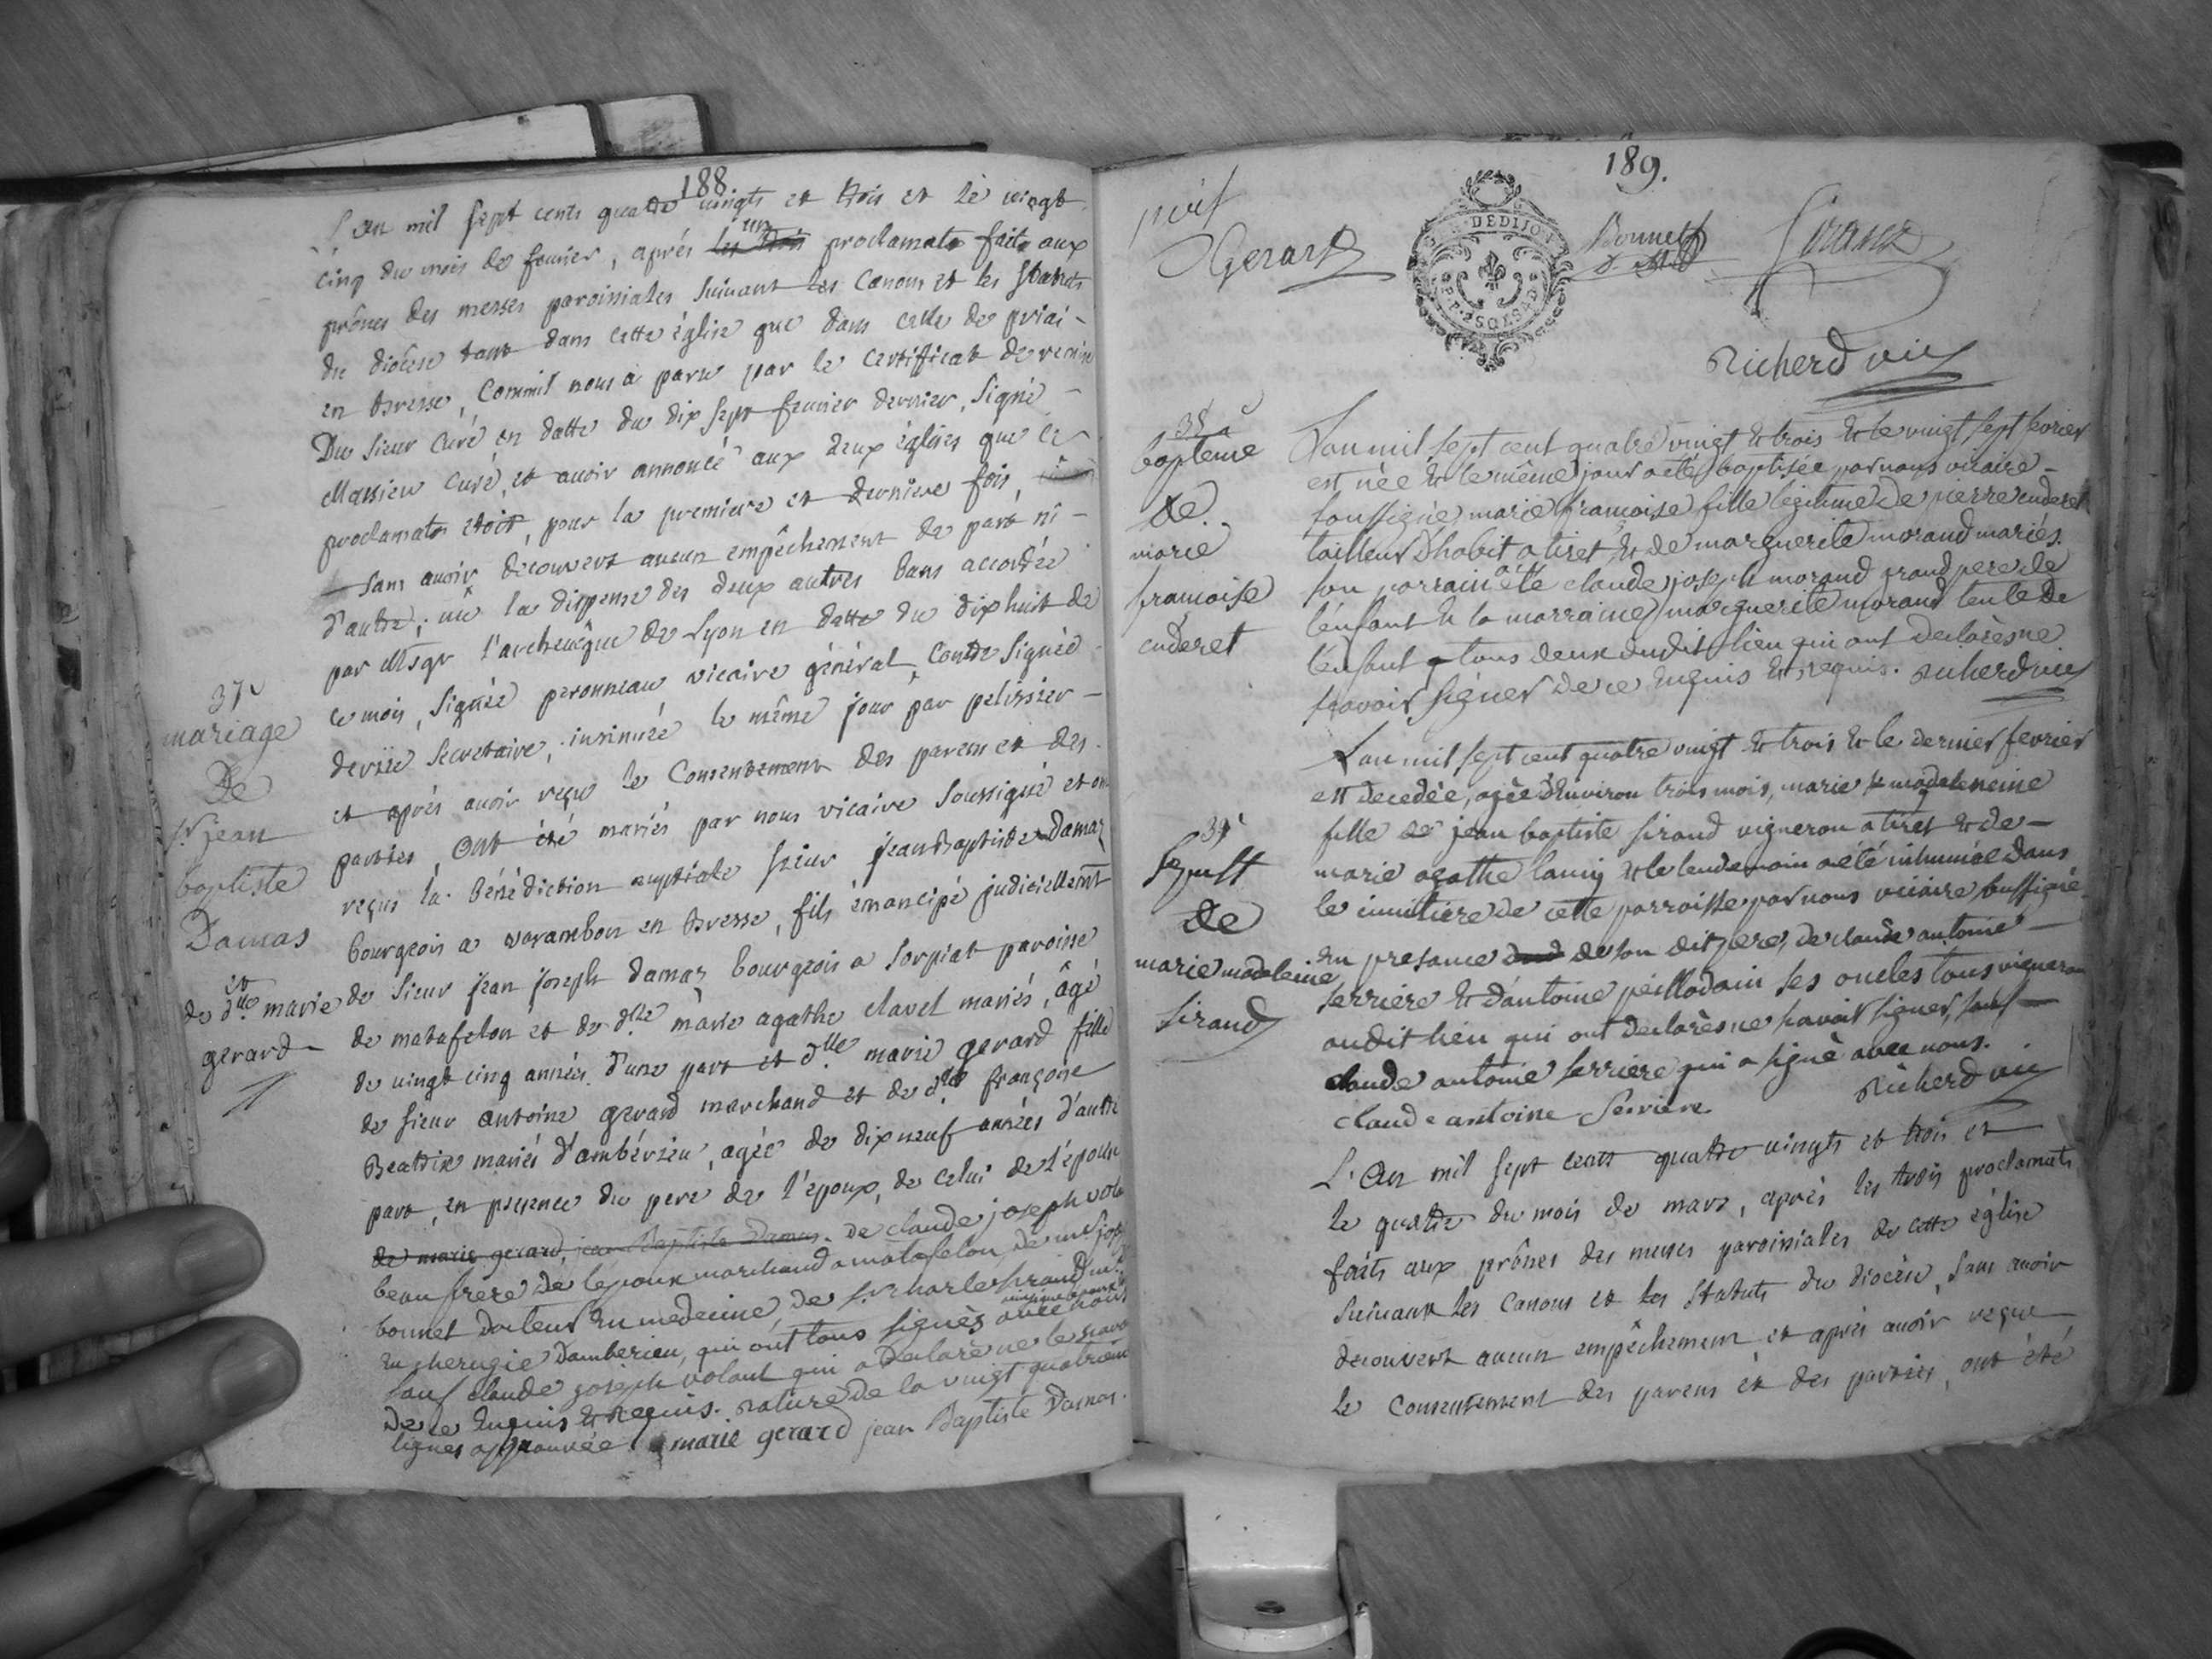 188
L'an mil sept cents quatre vingts et trois et le vingt
cinq du mois de fevrier, aprés les trois un proclamats fait aux
prônes des messes paroissiales suivant les Canons et les statuts
du diocèse tant dans cette église que dans celle de priai-
en bresse, Comm'il nous a paru par le certifficat de remise
Du sieur Curé en datte du dix sept fevrier dernier, signé -
Massieu curé, et avoir annoncé aux deux églises que ce
proclamats etoit, pour la premiere et derniere fois,
sans avoir decouvert aucun empêchement de part ni -
d'autre; vû la dispense des deux autres bans accordée
par Msgr l'archevêque de Lyon en datte du dixhuit de
ce mois, signée peronneau vicaire général, Contre signée
secretaire, insinuée le même jour par pelissier -
et aprés avoir reçu le Consentement des parens et des
parties, ont été mariés par nous vicaire soussigné et ont
reçus la Bénédiction nuptiale sieur jean Baptiste Damaz
bourgeois a varambon en bresse, fils émancipé judiciellemt
de sieur jean joseph damaz bourgeois a sorpiat paroisse
de matafelon et de dlle marie agathe clavel mariés, âgé
de vingt cinq années d'une part et dlle marie gerard fille
de sieur antoine gerard marchand et de dlle françoise
Beatrix mariés d'ambérieu, agée de dixneuf années d'autre
part, en presence du pere de l'epoux, de celui de l'épouse
de marie gerard, jean Baptiste Damas. de claude joseph
beau frere de lepoux marchand a matafelon, de
bonnet docteur en medecine, de sr charles sirand
en cherugie Damberieu, qui ont tous signés avec nous
sauf claude joseph volant qui a declaré ne le savoir
De ce enquis & requis. rature de la vingt quatrieme
lignes approuvée marie gerard jean Baptiste Damas.
37e
mariage
De
sr jean
baptiste
Damas
et
de dlle marie
gerard
189.
Gerard
DE DIJON
Bonnet
Sirand
Richerd vic
38e
baptême
de
marie
francoise
cuderet
L'an mil sept cent quatre vingt & trois & le vingt sept fevrier
est née & le même jour a été baptisée par nous vicaire -
soussigné, marie francoise fille légitime de pierre cuderet
tailleur D'habit a tiret & de marguerite morand mariés.
son parrain a été claude joseph morand grand pere de
l'enfant & la marraine marguerite morand tente de
l'enfant tous deux dudit lieu qui ont declarés ne
scavoir signer de ce enquis & requis. richerd vic
39e
sepult
de
marie madeleine
sirand
L'an mil sept cent quatre vingt & trois & le dernier fevrier
est decedée, agée D'environ trois mois, marie madeleneine
fille de jean baptiste sirand vigneron a tiret & de -
marie agathe lamy & le lendemain a été inhumée dans
le cimitiere de cette parroisse par nous vicaire soussigné
en presance de son dit pere, de claude antoine
serriere & d'antoine peillodain ses oncles tous vigneron
audit lieu qui ont declarés ne savoir signer, sauf
claude antoine serriere qui a signé avec nous.
claude antoine Serriere Richerd vic
L'an mil sept cents quatre vingts et trois et
le quatre du mois de mars, aprés les trois proclamats
faits aux prônes des messes paroissiales de cette église
suivant les Canons et les statuts du diocèse, sans avoir
decouvert aucun empêchement, et aprés avoir reçue
le Consentement des parens et des parties, ont été